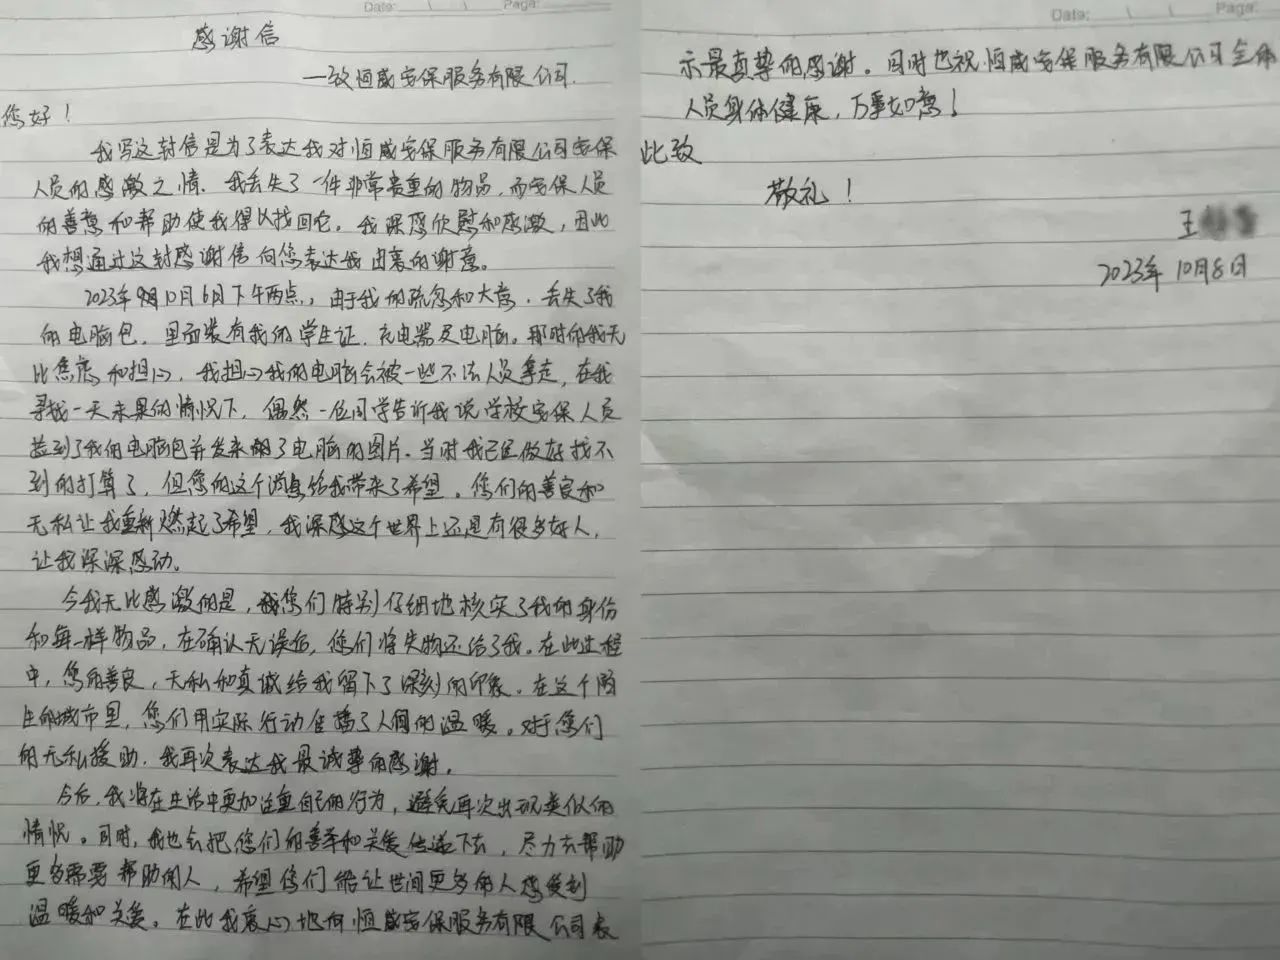 Date: Page:
感谢信
—致恒威安保服务有限公司.
您好！
我写这封信是为了表达我对恒威安保服务有限公司安保
人员的感激之情. 我丢失了一件非常贵重的物品, 而安保人员
的善意和帮助使我得以找回它。我深感欣慰和感激, 因此
我想通过这封感谢信向您表达我由衷的谢意。
2023年10月6日下午两点, 由于我的疏忽和大意, 丢失了我
的电脑包, 里面装有我的学生证, 充电器及电脑。那时的我无
比焦虑和担心, 我担心我的电脑会被一些不法人员拿走, 在我
寻找一天未果的情况下, 偶然一位同学告诉我说学校安保人员
捡到了我的电脑包并发来了电脑的图片. 当时我已经做好找不
到的打算了, 但您的这个消息给我带来了希望。您们的善良和
无私让我重新燃起了希望, 我深感这个世界上还是有很多好人,
让我深深感动。
令我无比感激的是, 您们特别仔细地核实了我的身份
和每一样物品, 在确认无误后, 您们将失物还给了我。在此过程
中, 您的善良, 无私和真诚给我留下了深刻的印象。在这个陌
生的城市里, 您们用实际行动传播了人间的温暖。对于您们
的无私援助, 我再次表达我最诚挚的感谢。
今后, 我将在生活中更加注重自己的行为, 避免再次出现类似的
情况。同时, 我也会把您们的善举和关爱传递下去, 尽力去帮助
更多需要帮助的人, 希望您们能让世间更多的人感受到
温暖和关爱。在此我衷心地向恒威安保服务有限公司表
Date: Page:
示最真挚的感谢。同时也祝恒威安保服务有限公司全体
人员身体健康, 万事如意！
此致
敬礼！
王
2023年10月8日